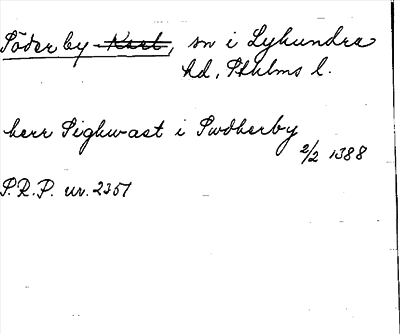 Söderby ~~Karl~~, sn i Lyhundra
hd, Sthlms l.
herr Sighwast i Swdherby
2/2 1388
S.R.P. nr. 2357